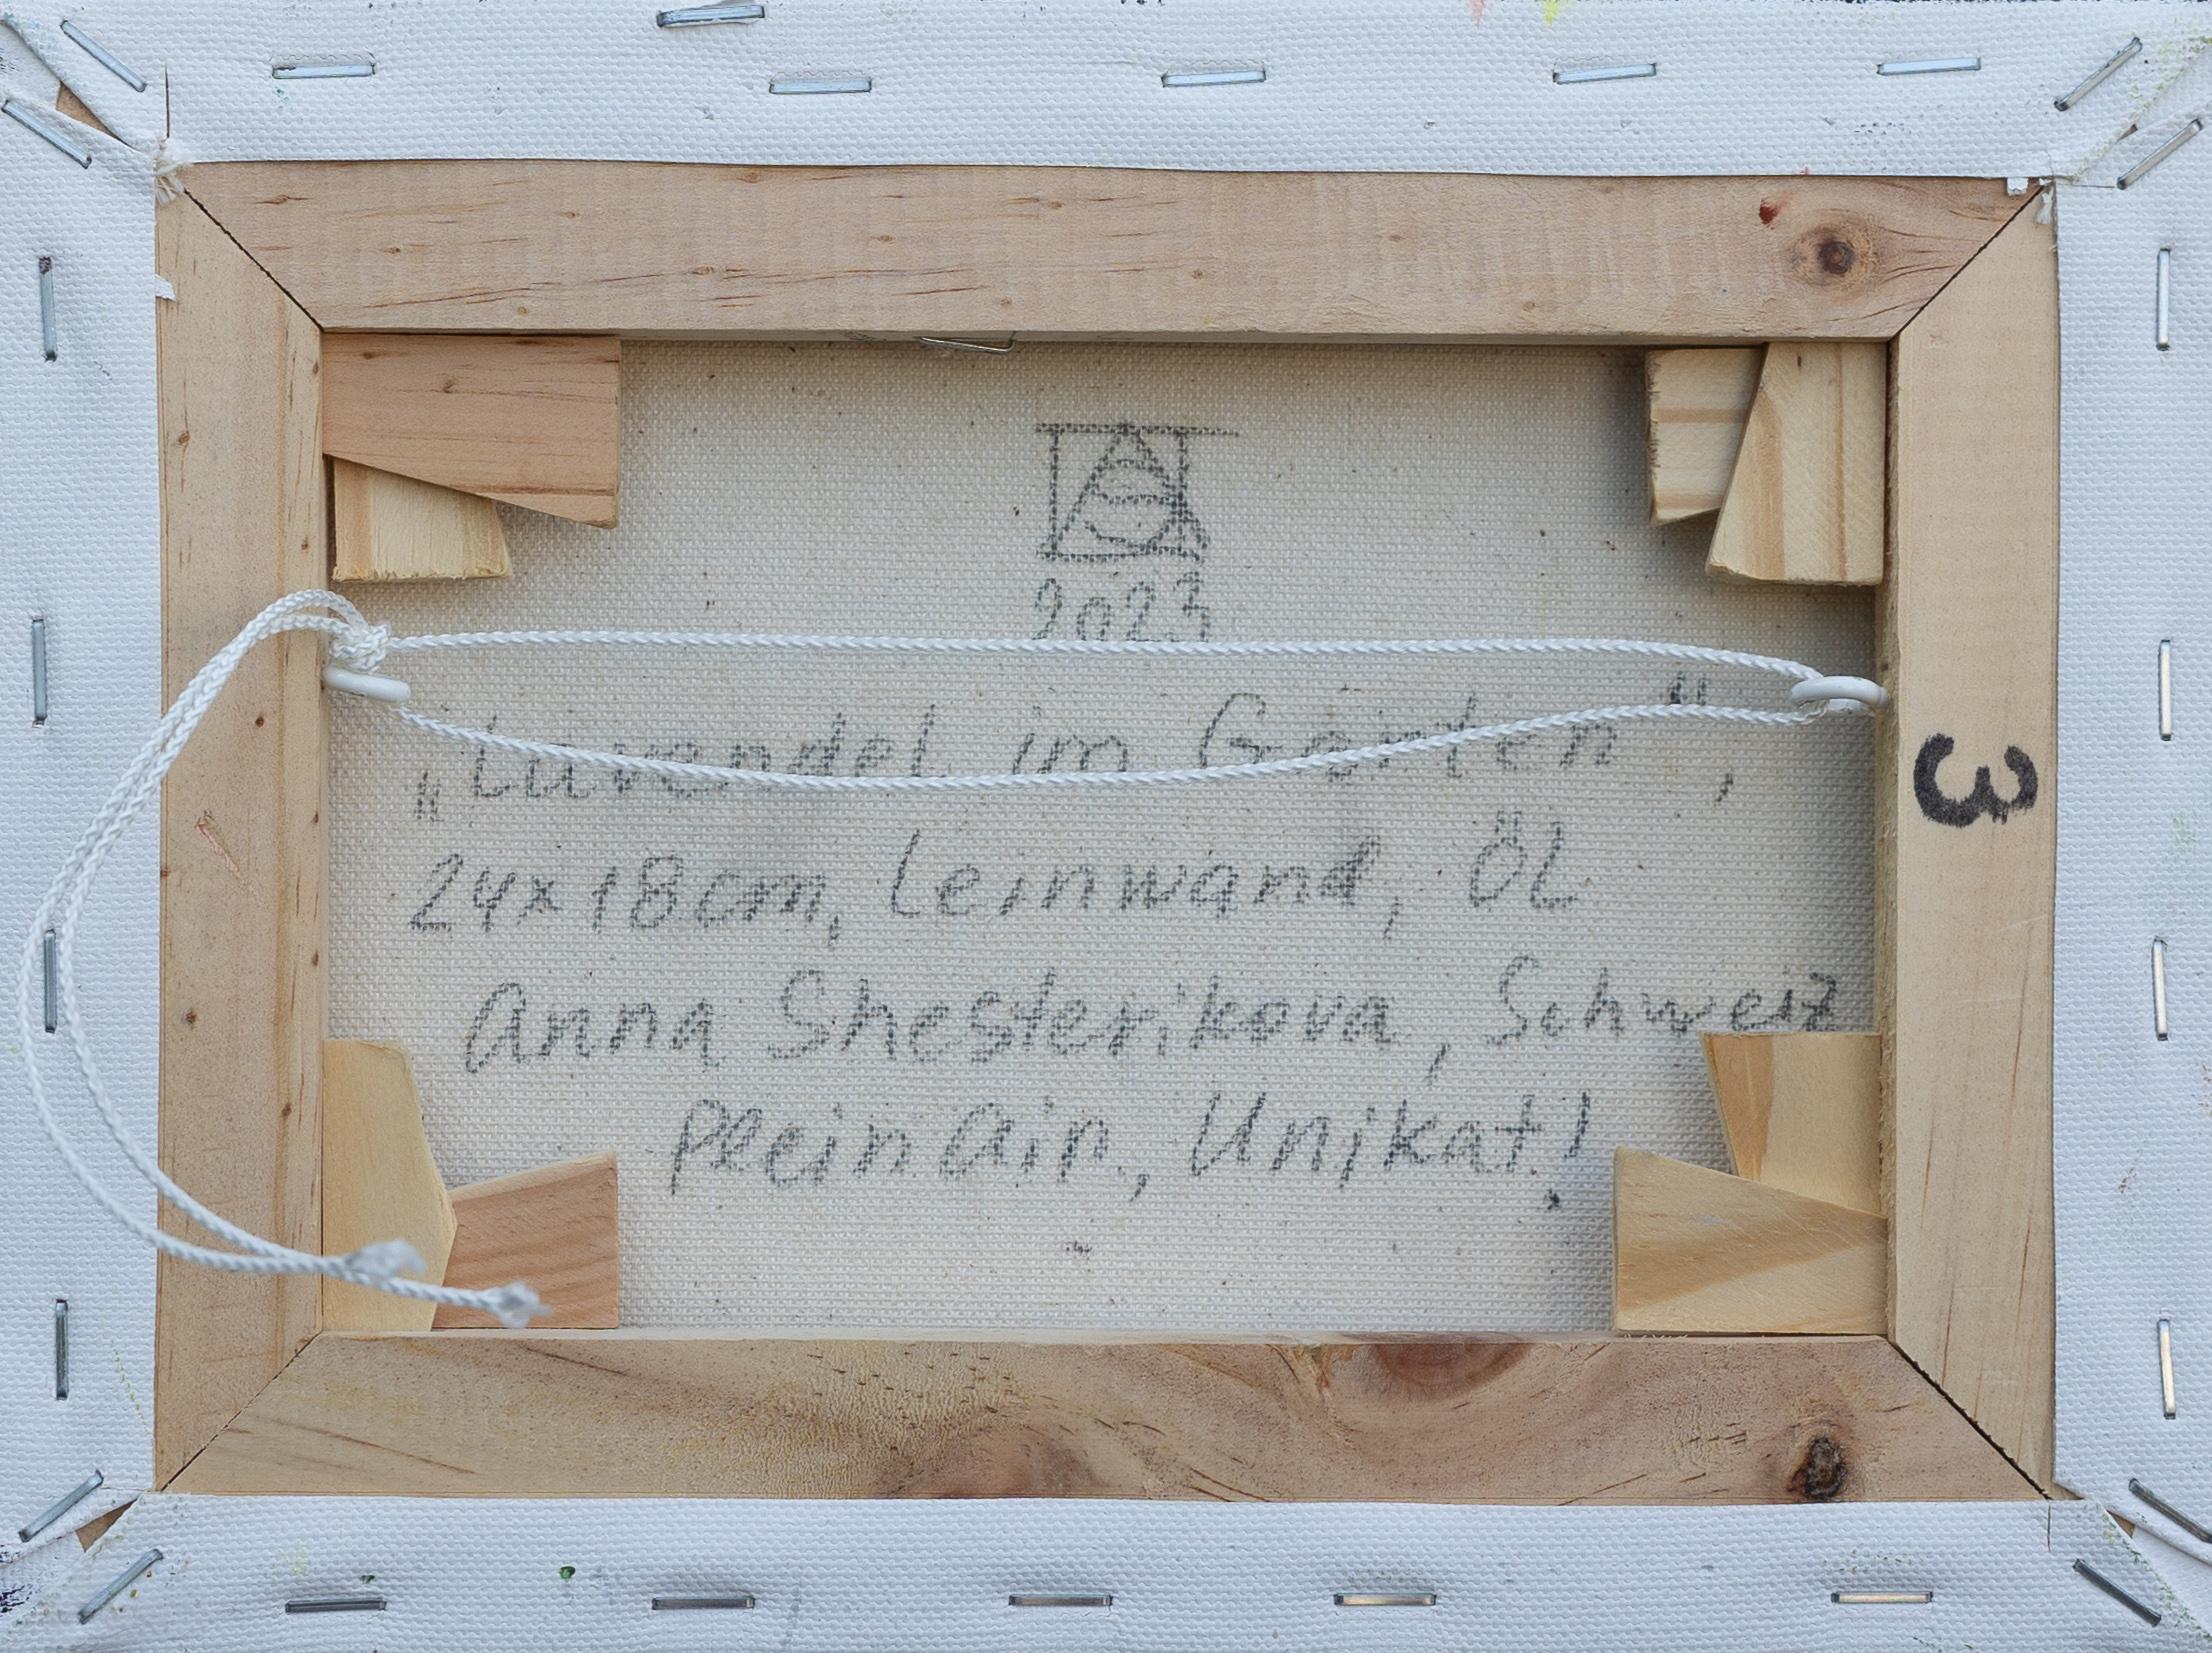 2023
„Lavendel im Garten",
24x18cm, Leinwand, ÖL
Anna Shesterikova, Schweiz
Plein Air, Unikat!
3